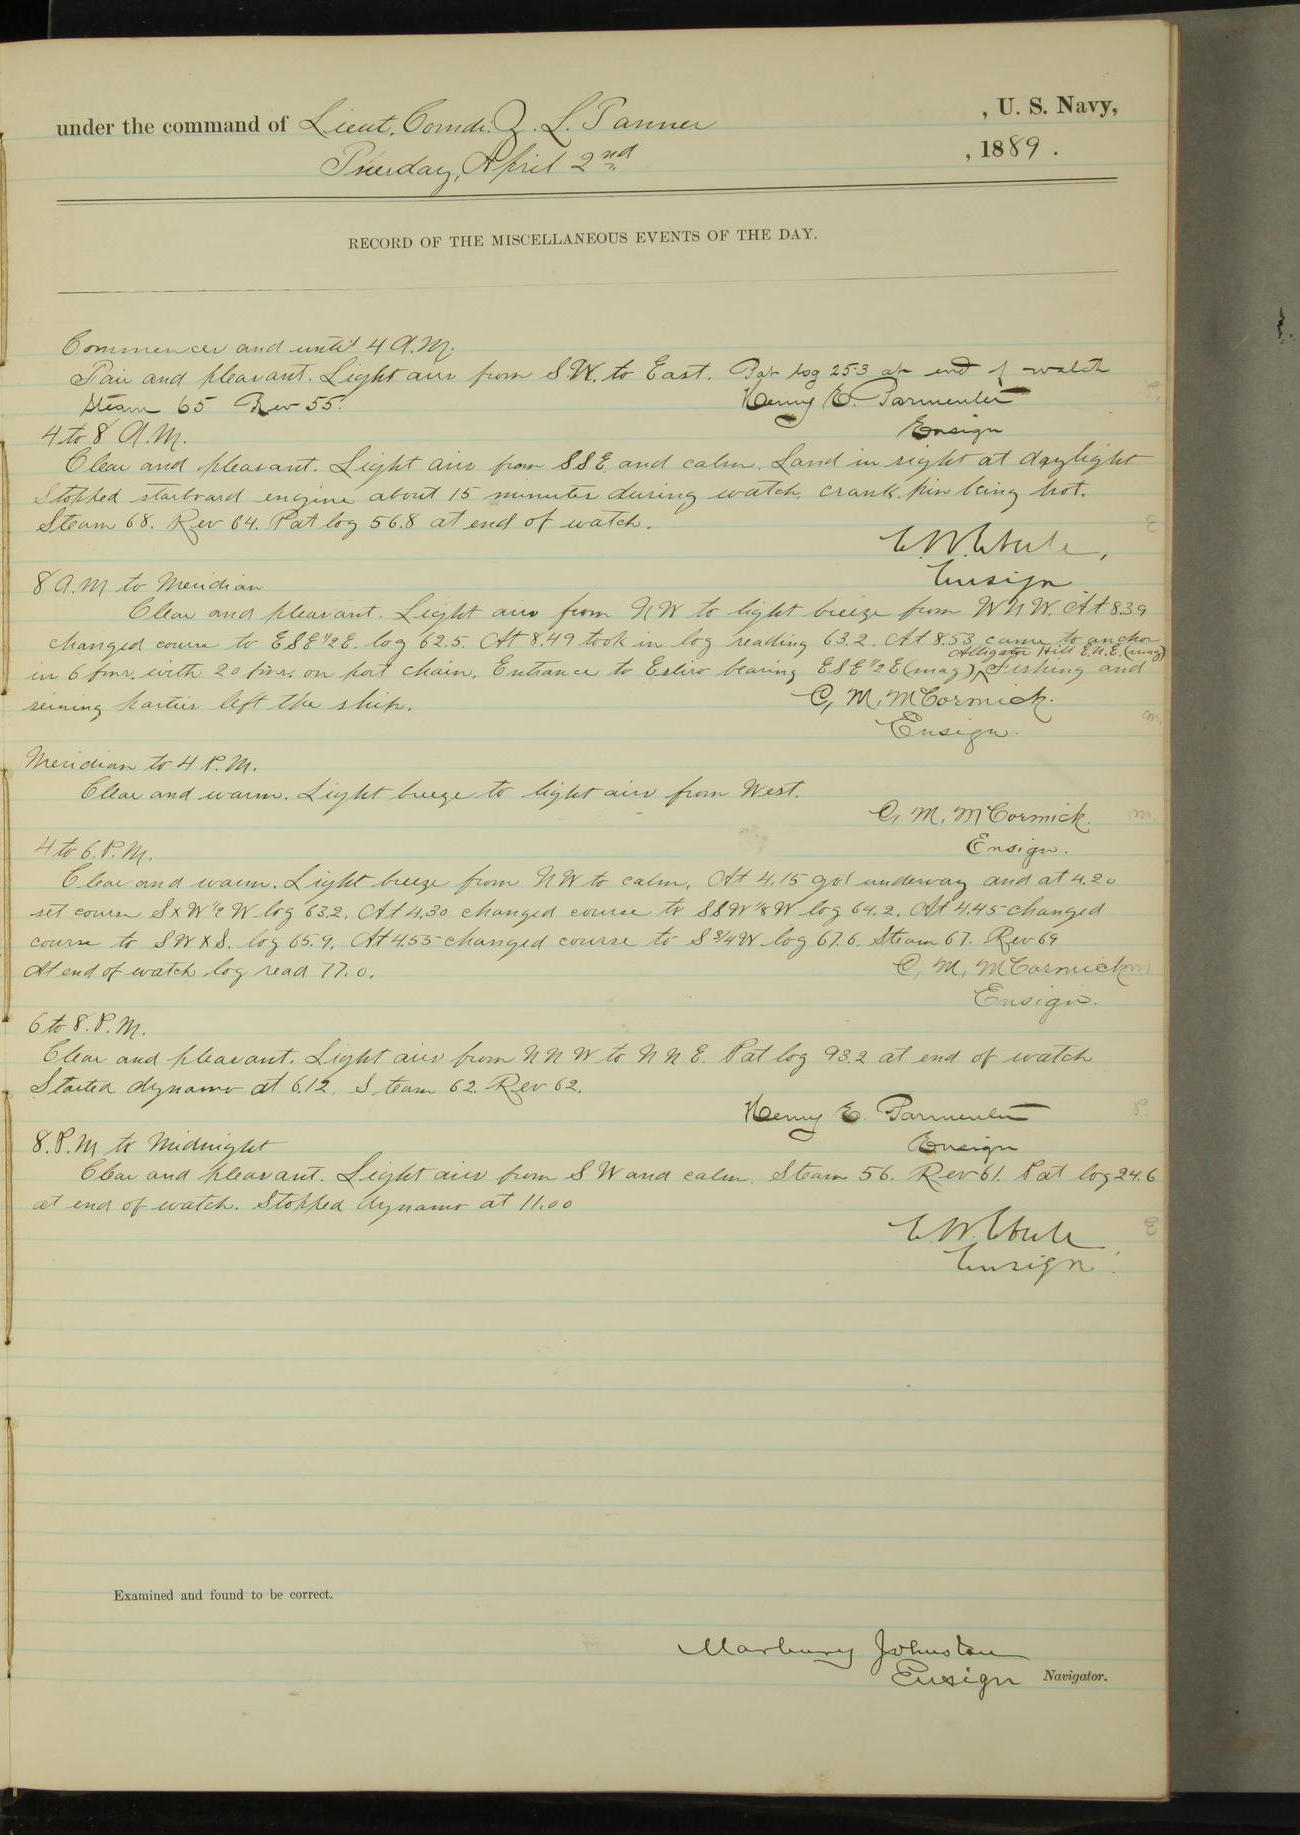 under the command of Lieut. Comdr. Z. L. Tanner , U. S. Navy,
Tuesday, April 2nd , 1889.
RECORD OF THE MISCELLANEOUS EVENTS OF THE DAY.
Commences and until 4 A.M.
Fair and pleasant. Light airs from SW. to East. Pat log 25.3 at end of watch
Steam 65 Rev 55. Henry E. Parmenter
4 to 8 A.M. Ensign
Clear and pleasant. Light airs from SSE. and calm. Land in sight at daylight
Stopped starboard engine about 15 minutes during watch, crank pin being hot.
Steam 68. Rev 64. Pat log 56.8 at end of watch.
E. W. Eberle,
Ensign
8 A.M to Meridian
Clear and pleasant. Light airs from NW to light breeze from WNW. At 8.39
changed course to ESE 1/2 E. log 62.5. At 8.49 took in log reading 63.2. At 8.53 came to anchor
Alligator Hill E.N.E. (mag)
in 6 fms. with 20 fms. on port chain. Entrance to Estero bearing ESE 1/2 E (mag) Fishing and
seining parties left the ship. C. M. McCormick.
Ensign.
Meridian to 4 P.M.
Clear and warm. Light breeze to light airs from West.
C. M. McCormick.
4 to 6. P.M. Ensign.
Clear and warm. Light breeze from NW to calm. At 4.15 got underway and at 4.20
set course SxW 1/2 W log 63.2. At 4.30 changed course to SSW 1/8 W log 64.2. At 4.45 changed
course to SWxS. log 65.9. At 4.55 changed course to S 3/4 W log 67.6. Steam 67. Rev 69
At end of watch log read 77.0. C. M. McCormick
Ensign.
6 to 8. P.M.
Clear and pleasant. Light airs from NNW to NNE. Pat log 93.2 at end of watch
Started dynamo at 6.12. Steam 62. Rev 62.
Henry E. Parmenter
8. P.M to Midnight Ensign
Clear and pleasant. Light airs from SW and calm. Steam 56. Rev 61. Pat log 24.6
at end of watch. Stopped dynamo at 11.00
E. W. Eberle
Ensign.
Examined and found to be correct.
Marbury Johnston
Ensign Navigator.